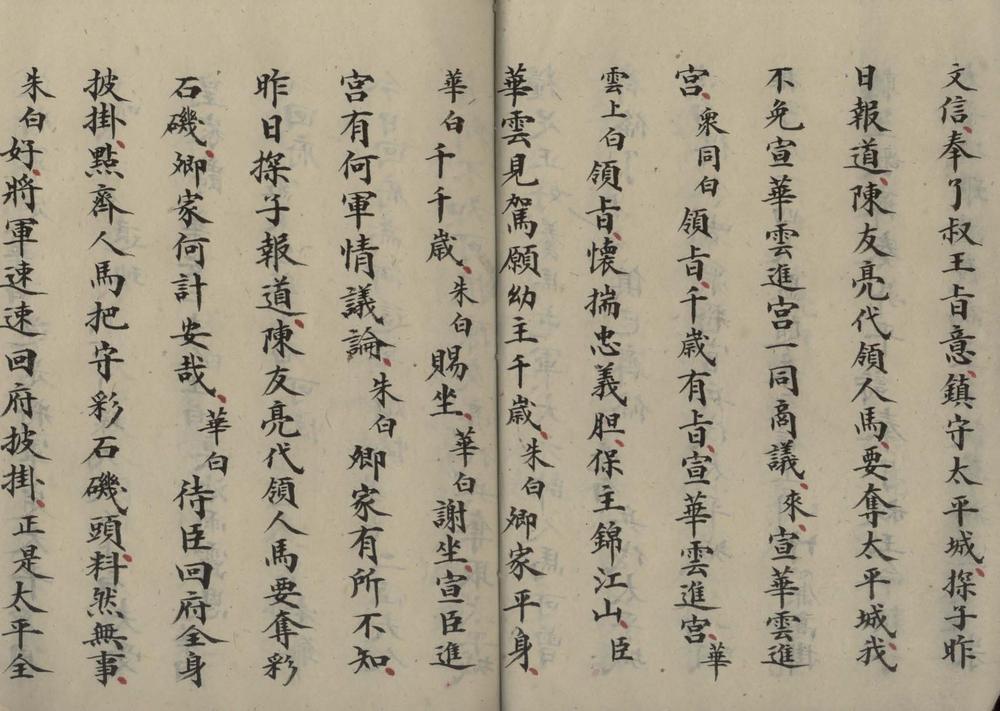 文信、奉了叔王旨意、鎮守太平城、探子昨
日報道、陳友亮代領人馬、要奪太平城、我
不免宣華雲進宮一同啇議、來、宣華雲進
宮、衆同白領旨、千歲有旨、宣華雲進宮、華
雲上白領旨、懷揣忠義胆、保主錦江山、臣
華雲見駕願幼主千歲、朱白卿家平身、
華白千千歲、朱白賜坐、華白謝坐、宣臣進
宮有何軍情議論、朱白卿家有所不知
昨日探子報道、陳友亮代領人馬要奪彩
石磯、卿家何計安哉、華白待臣回府全身
披掛、點齊人馬把守彩石磯頭、料然無事、
朱白好、將軍速速回府披掛、正是太平全